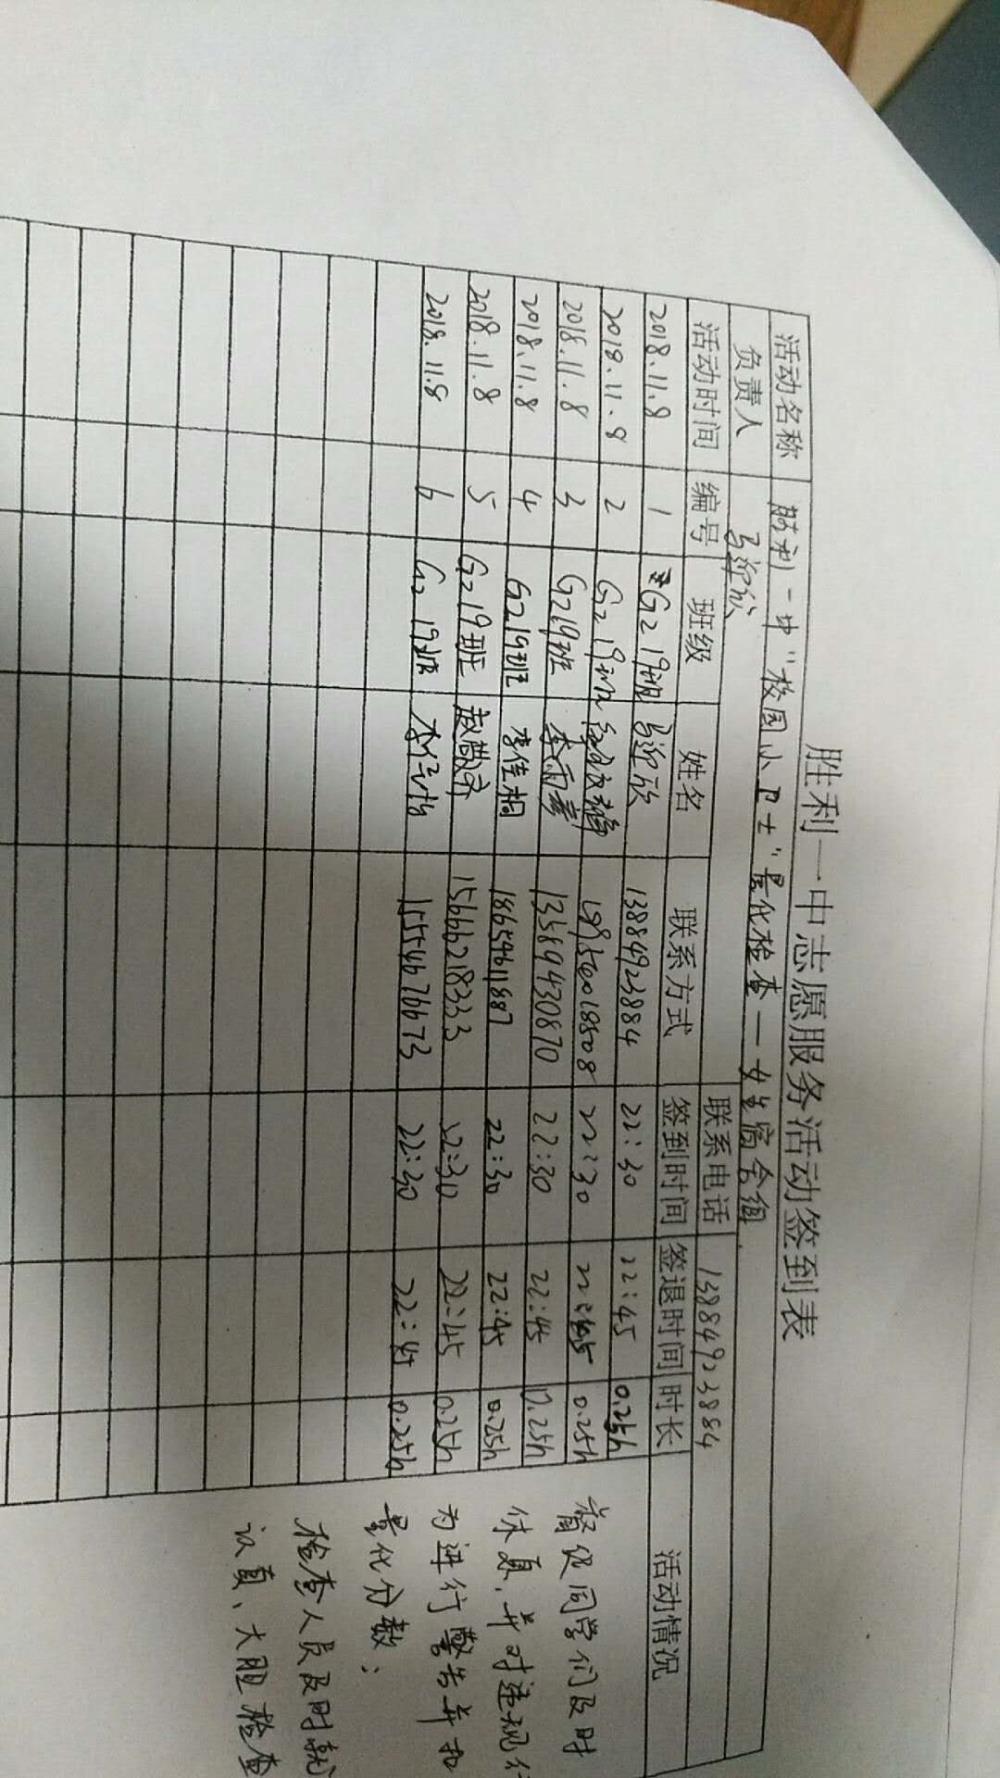 胜利一中志愿服务活动签到表
活动名称 胜利一中"校园小卫士"量化检查—女生宿舍组
负责人 马迎欣 联系电话 13884923884
活动时间 编号 班级 姓名 联系方式 签到时间 签退时间 时长 活动情况
2018.11.8 1 G219班 马迎欣 13884923884 22:30 22:45 0.25h
2018.11.8 2 G219班 22:30 22:45 0.25h
2018.11.8 3 G219班 李雨 13589430870 22:30 22:45 0.25h
2018.11.8 4 G219班 李佳桐 18654611887 22:30 22:45 0.25h
2018.11.8 5 G219班 赵 15666218333 22:30 22:45 0.25h
2018.11.8 6 G219班 李 1554676673 22:30 22:45 0.25h
督促同学们及时
休息,并对违规行
为进行警告并扣
量化分数;
检查人员及时就
认真、大胆检查